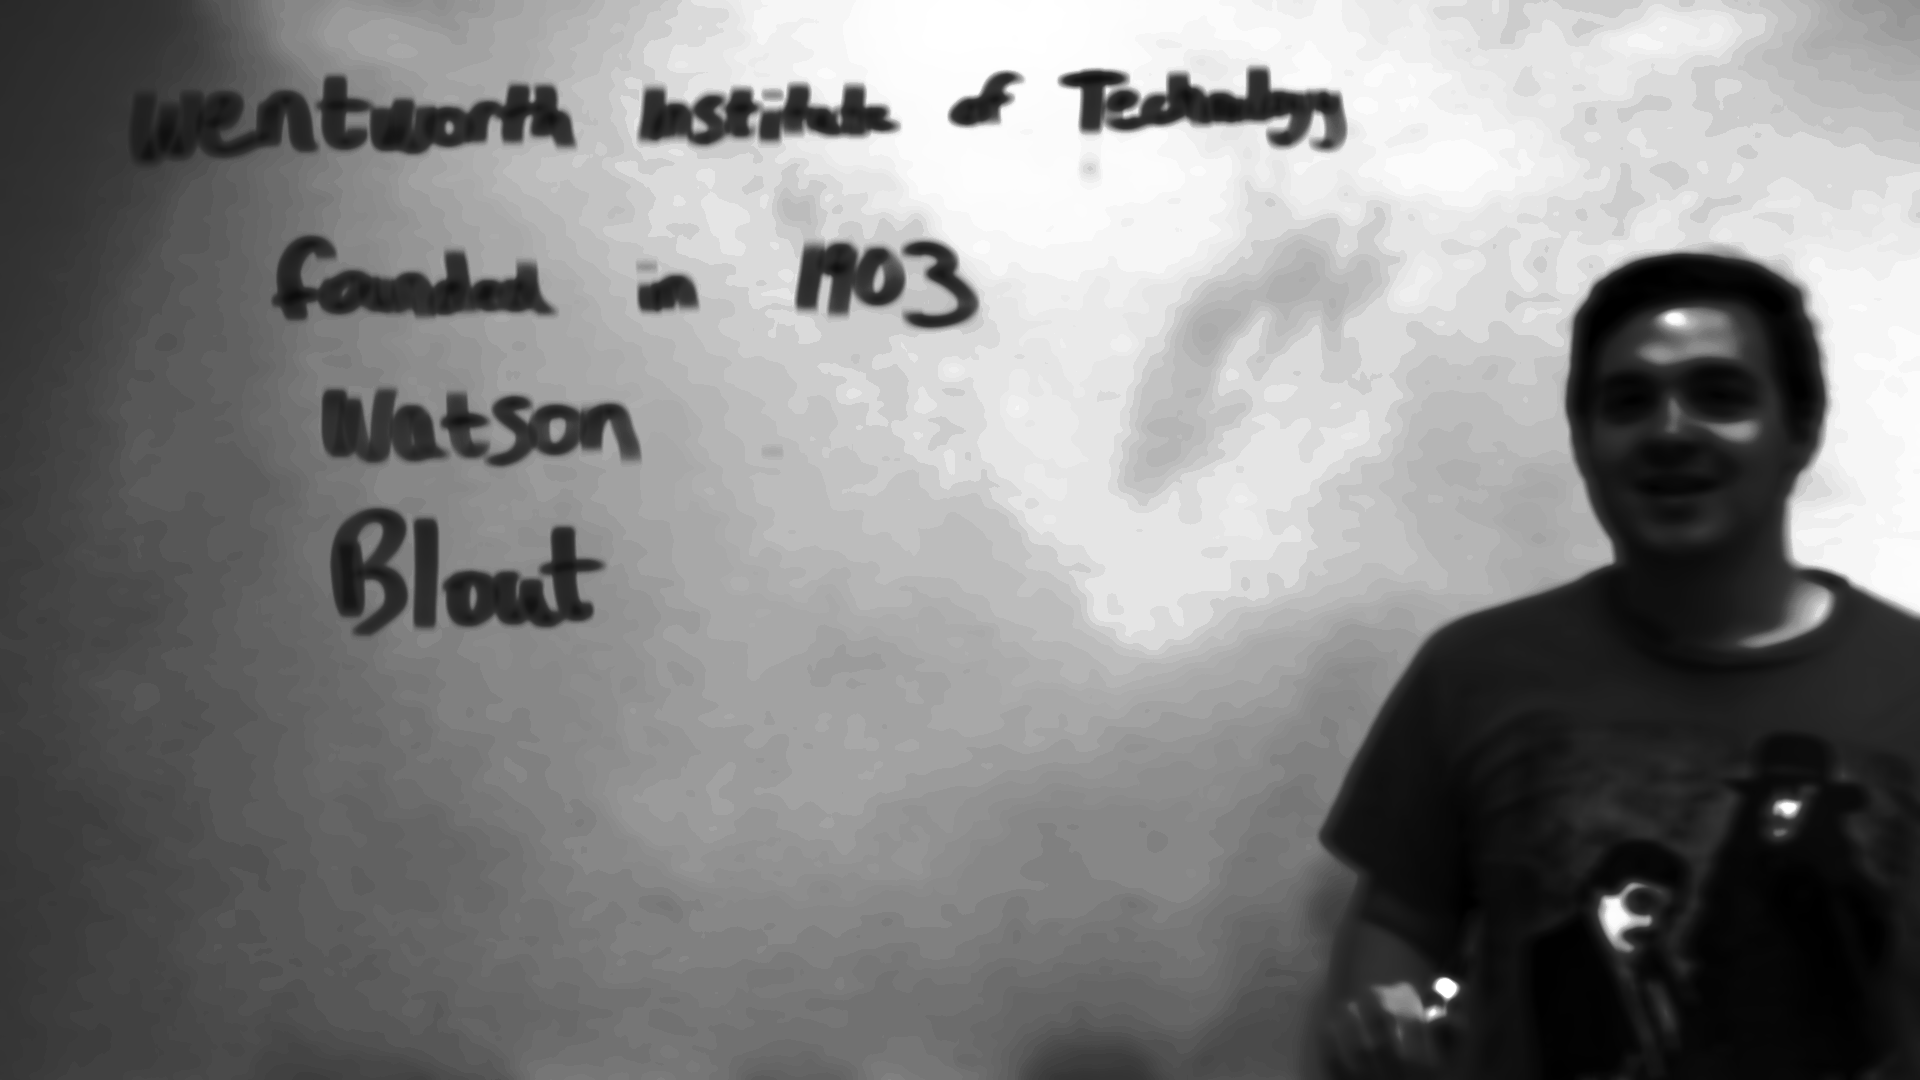 Wentworth Institute of Technology
founded in 1903
Watson
Blout